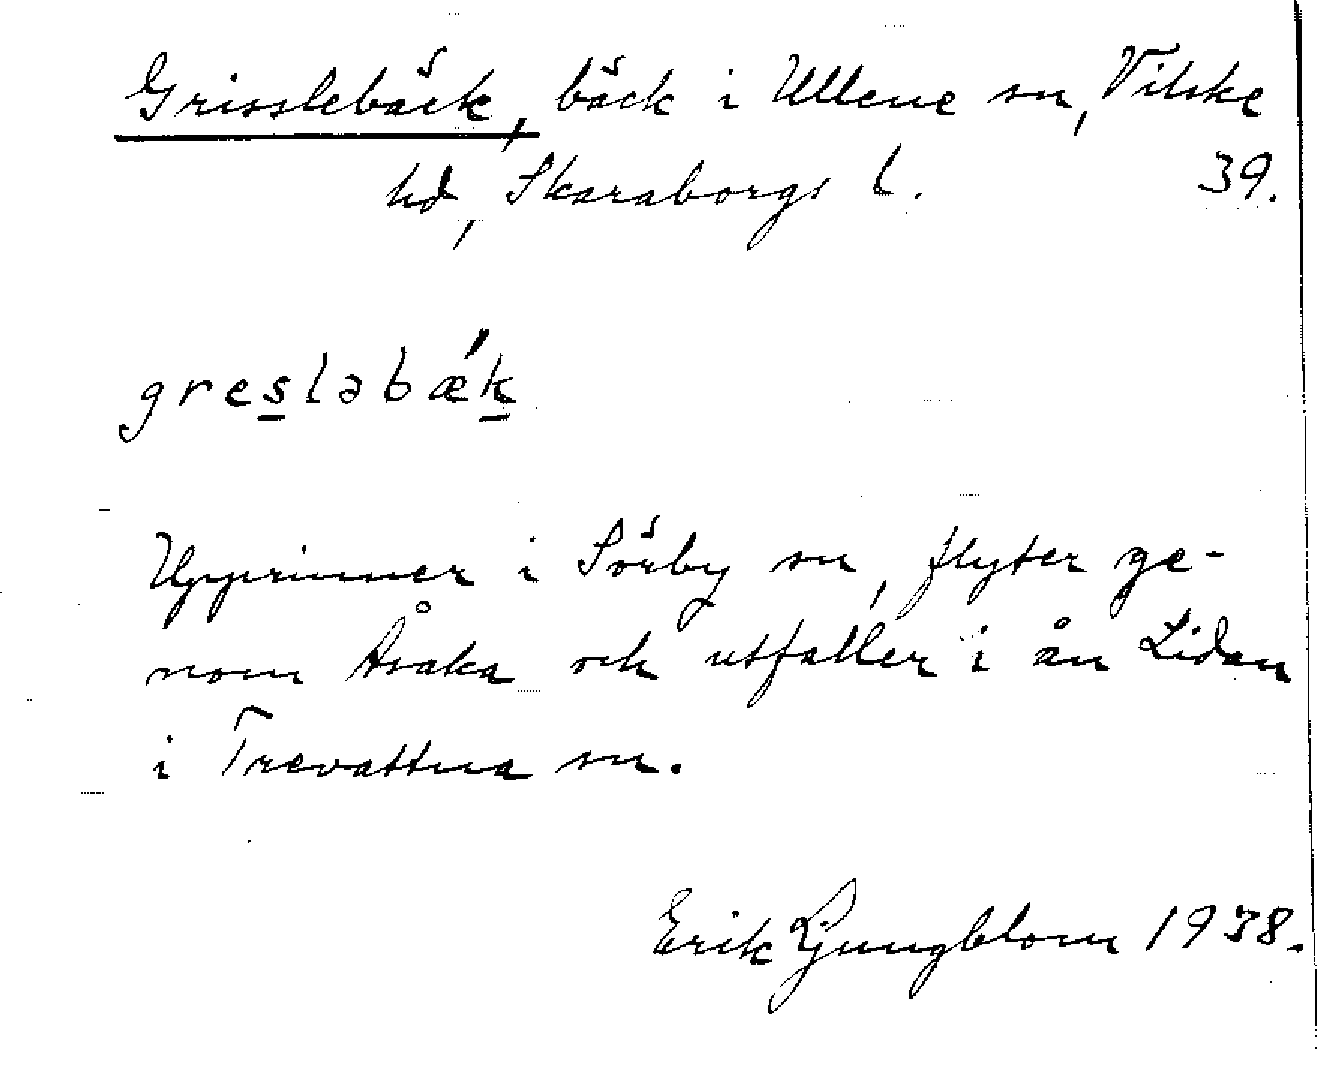 Grisslebäck, bäck i Ullene sn, Vilske
hd, Skaraborgs l. 39.
greslabǽk
Upprinner i Sörby sn, flyter ge-
nom Åsaka och utfaller i ån Lidan
i Trevattna sn.
Erik Ljungblom 1938.